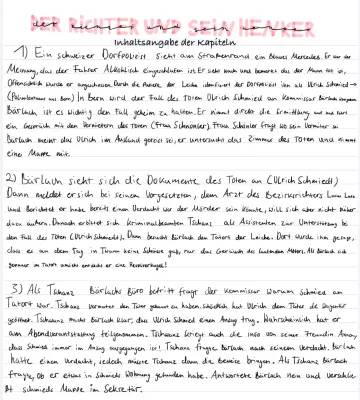 DER RICHTER UND SEIN HENKER
Inhaltsangabe der Kapiteln
1) Ein schweizer Dorfpolizist sieht am Straßenrand ein Blaues Mercedes. Er war der
Meinung, das der Fahrer Alkoholisch eingeschlafen ist. Er sieht nach und bemerkt das der Mann tot ist,
Offensichtlich wurde er angeschossen. Durch die der Leiche identifiziert der Dorfpolizist ihn als Ulrich Schmied →
(Polizeileutnant aus Bern) In Bern wird der Fall des Toten Ulrich Schmied an Kommissar Bärlach vergeben
Bärlach, ist es wichtig den Fall geheim zu halten. Er nimmt direkt die Ermittlung auf und führt
ein Gespräch mit den Vermietern des Toten (Frau Schönler). Frau Schönler fragt wo sein Vermieter ist
Bärlach meint das Ulrich im Ausland gereist sei, er untersucht das Zimmer des Toten und nimmt
eine Mappe mit.
2) Bärlach sieht sich die Dokumente des Toten an (Ulrich Schmied)
Dann meldet er sich bei seinem Vorgesetzten, dem Arzt des Bezirksrichters Lucius Lutz
und berichtet er habe bereits einen Verdacht wer der Mörder sein könnte, will sich aber nicht näher
dazu äußern. Danach erbittet sich kriminalbeamten Tschanz als Assistenten zur Unterstützung bei
den Fall des Toten (Ulrich Schmieds). Dann besucht Bärlach den Tatort der Leiche. Dort wurde ihm gesagt,
dass es an dem Tag in Twann keine Schüsse gab, nur das Geräusch des laufenden Motors. Als Bärlach sich
genauer im Tatort umsieht entdeckt er eine Revolverkugel!
3) Als Tschanz Bärlachs Büro betritt fragt der Kommissar warum Schmied am
Tatort war. Tschanz vermutet den Täter gekannt zu haben, schließlich hat Ulrich dem Täter die Wagentür
geöffnet. Tschanz macht Bärlach klar, das Ulrich Schmied einen Anzug trug. Wahrscheinlich hat er
am Abendveranstaltung teilgenommen. Tschanz kriegt auch die Info von seiner Freundin Anna,
dass Schmied immer im Anzug ausgegangen ist! Tschanz fragte Bärlach nach seinem Verdacht. Bärlach
hatte einen Verdacht, jedoch müsste Tschanz dann die Beweise bringen. Als Tschanz Bärlach
fragte, ob er etwas in Schmieds Wohnung gefunden habe. Antwortete Bärlach nein und verschließt
schmieds Mappe im Sekretär.